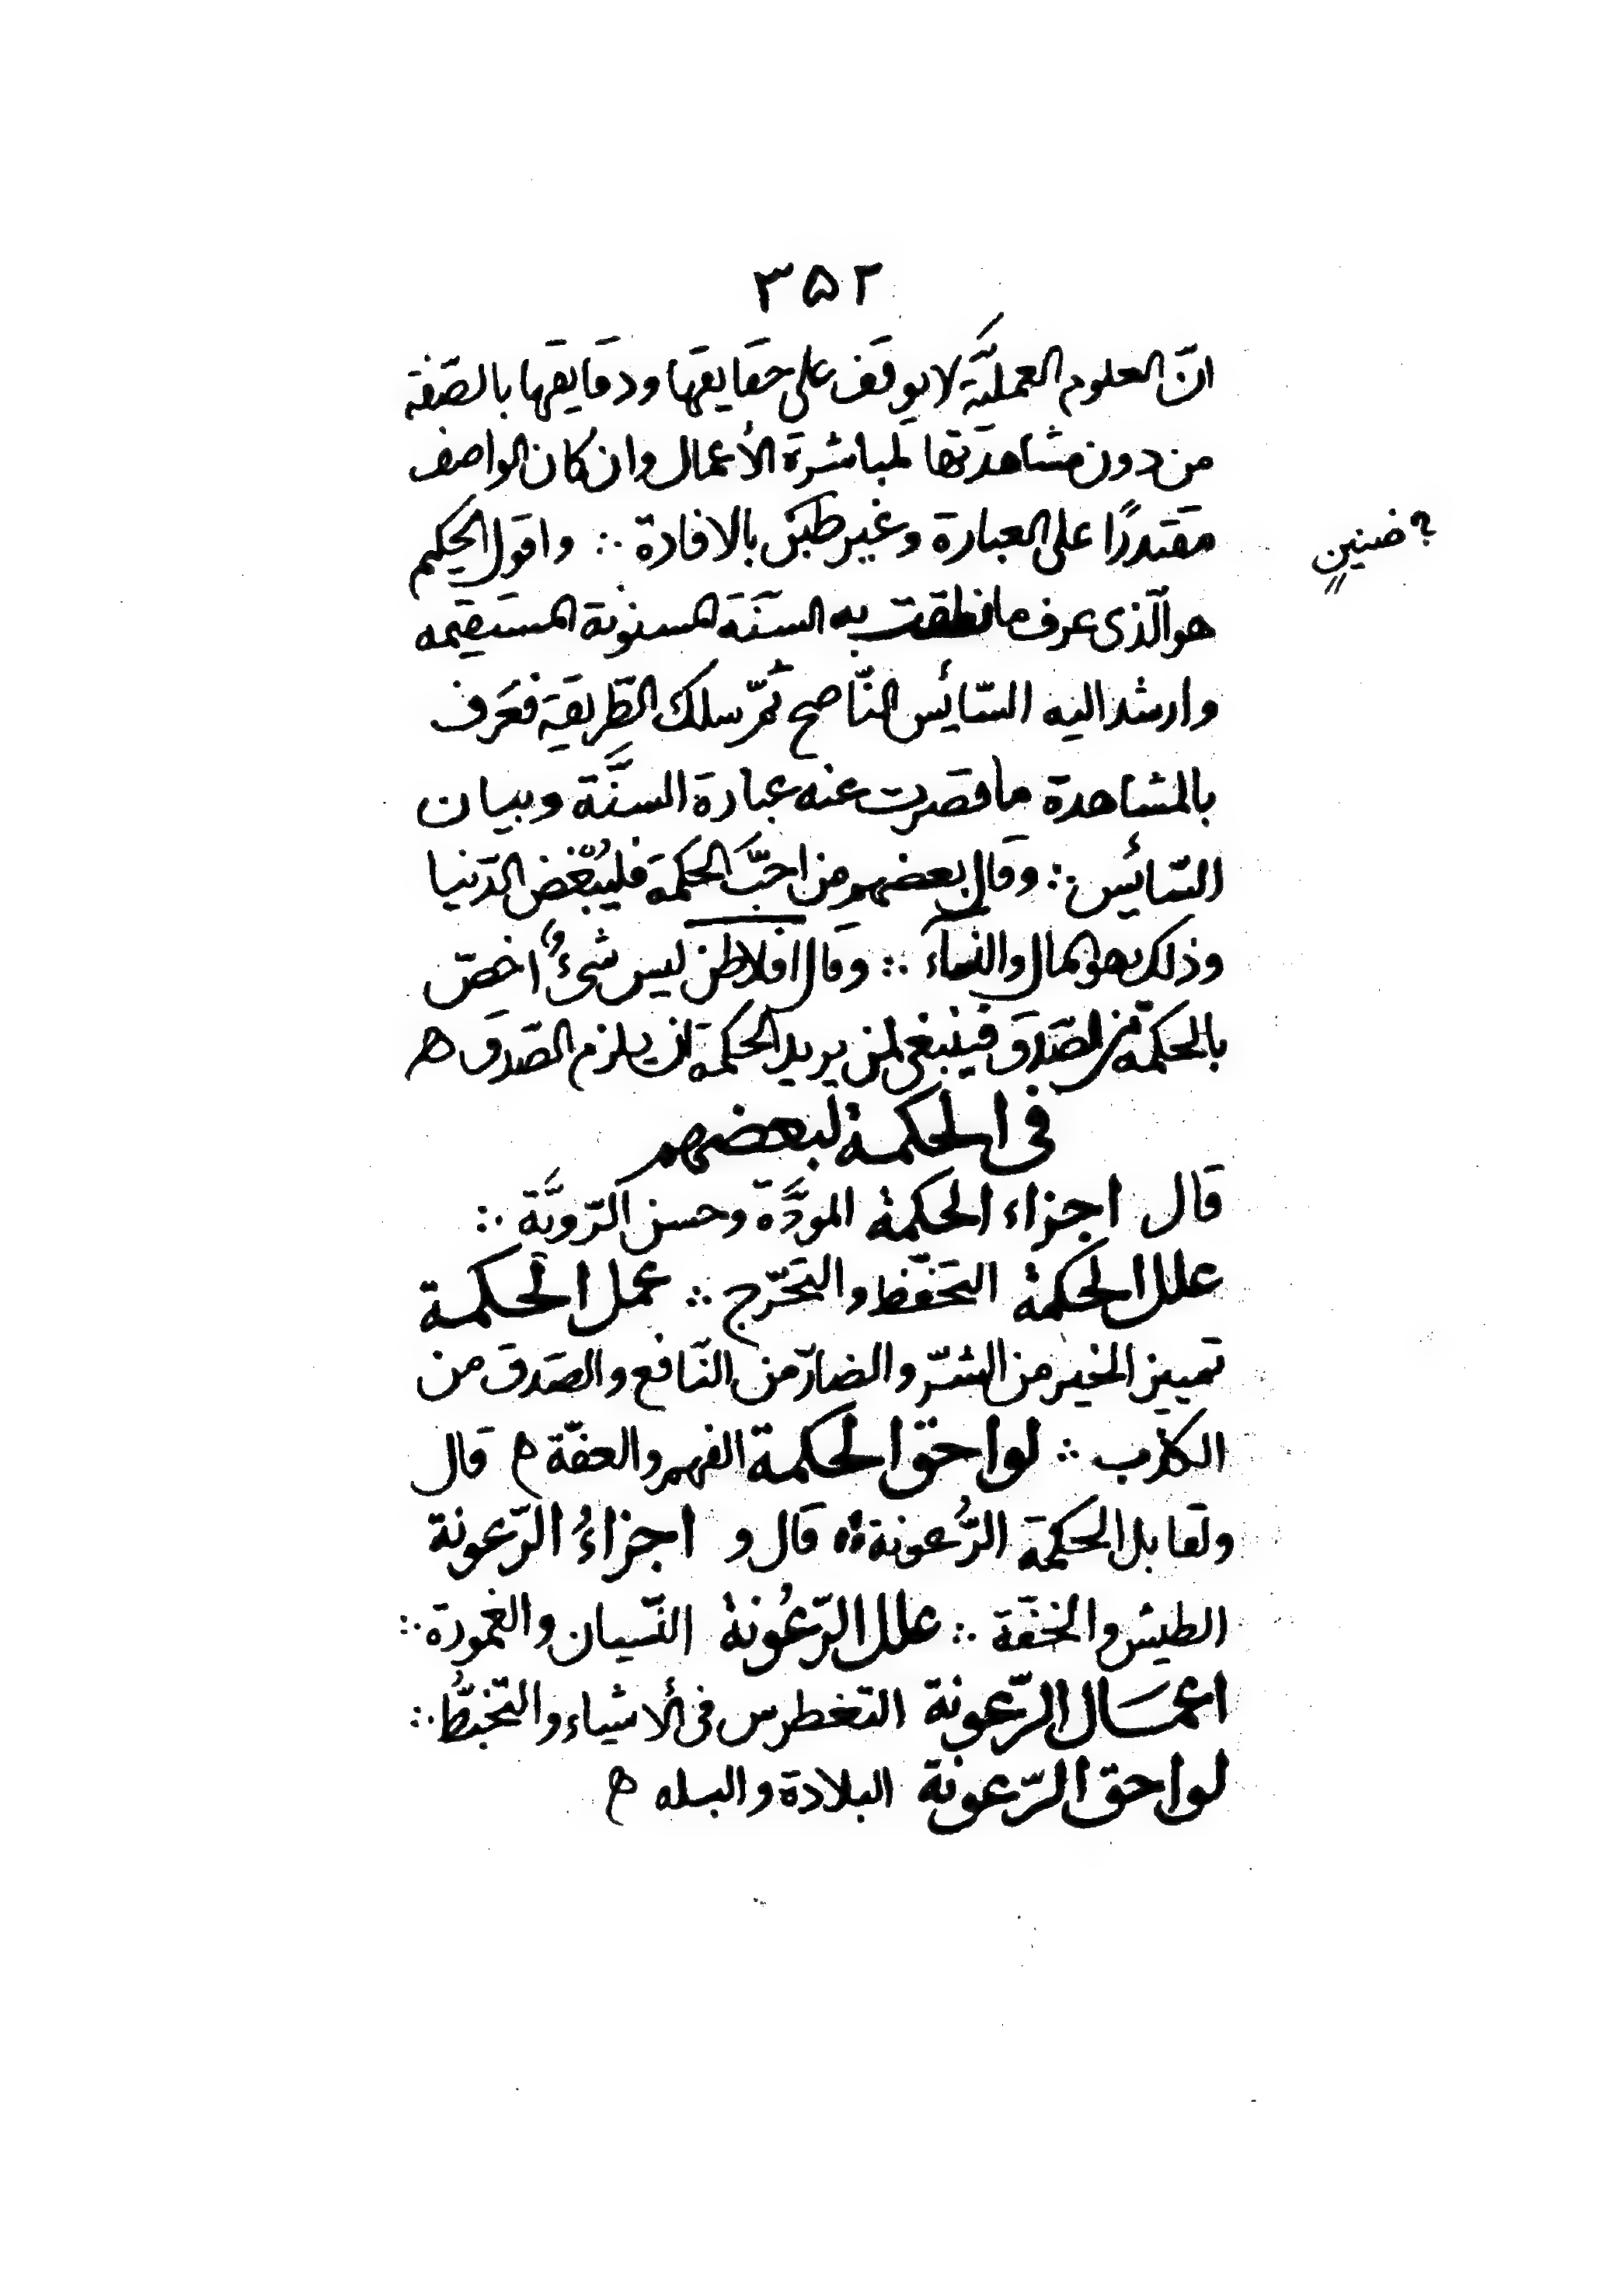 ٣٥٢
انّ العلوم العمليّة لا يوقف على حقايقها ودقايقها بالصّفة
من دون مشاهدتها لمباشرة الأعمال وان كان الواصف
مقتدرًا على العبارة وغير طبن بالافادة ∴ واقول الحكيم
؟ ضنين
هو الّذى عرف ما نطقت به السنّة المسنونة المستقيمه
وارشد اليه السّائس النّاصح ثمّ سلك الطّريقة فعَرف
بالمشاهدة ما قصرت عنه عبارة السنَّة وبيان
السّائس ∴ وقال بعضهم من احبَّ الحكمة فليُبّغض الدّنيا
وذلك هو المال والنسآء ∴ وقال افلاطن ليس شىءٌ اخصّ
بالحكمة من الصّدق فينبغى لمن يريد الحكمة ان يلزم الصّدق ه
فى الحكمة لبعضهم
قال اجزاء الحكمة المودَّة وحسن الرّويَّة ∴
علل الحكمة التحفّظ والتحَرّج ∴ عمل الحكمة
تمييز الخير من الشّرّ والضارّ من النّافع والصّدق من
الكذب ∴ لواحق الحكمة الفهم والعفّة ه قال
وتقابل الحكمة الرُّعونة ∴ قال و اجزاءُ الرّعونة
الطيش والخفّة ∴ علل الرّعُونة النّسيان والغمورة ∴
اعمَال الرّعونة التغطرس فى الأشياء والتخبّطُ ∴
لواحق الرّعونة البلادة والبله ه